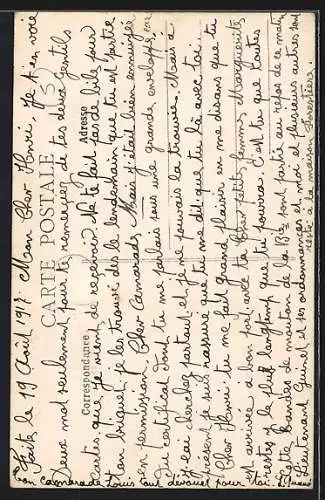 CARTE POSTALE
Correspondance
Adresse
Faite le 19 Août 1917 Mon Cher Henri, Je t'en voie
Deux mot seulement pour te remercier de tes deux gentils
Cartes, que je vient de recevoir. Ne te fait pas de bile pour
ton briquet, je les trouvé dès le lendemain que tu est partie
en permission, Cher Camarade, Mais s'était bien ennuyer
du certificat dont tu me parlais sous une grande enveloppe, car
j'ai cherchez partout et je ne pouvais la trouver. Mais a
présent je suis rassuré que tu me dit que tu là avec toi.
Cher Henri tu me fait grand plaisir en me disans que tu
est arrivée a bon port avec ta Cher petite femme Marguerite
restes le plus longtemp que tu pourra. C'est tu que toutes
cette bandes de de la Bie sont partie au repos de ce matin
Lieutenant Guinel et ses ordonnances et moi et plusieurs autres sont
resté a la maison Forestière.
ton camarade Louis tout dévouer pour toi